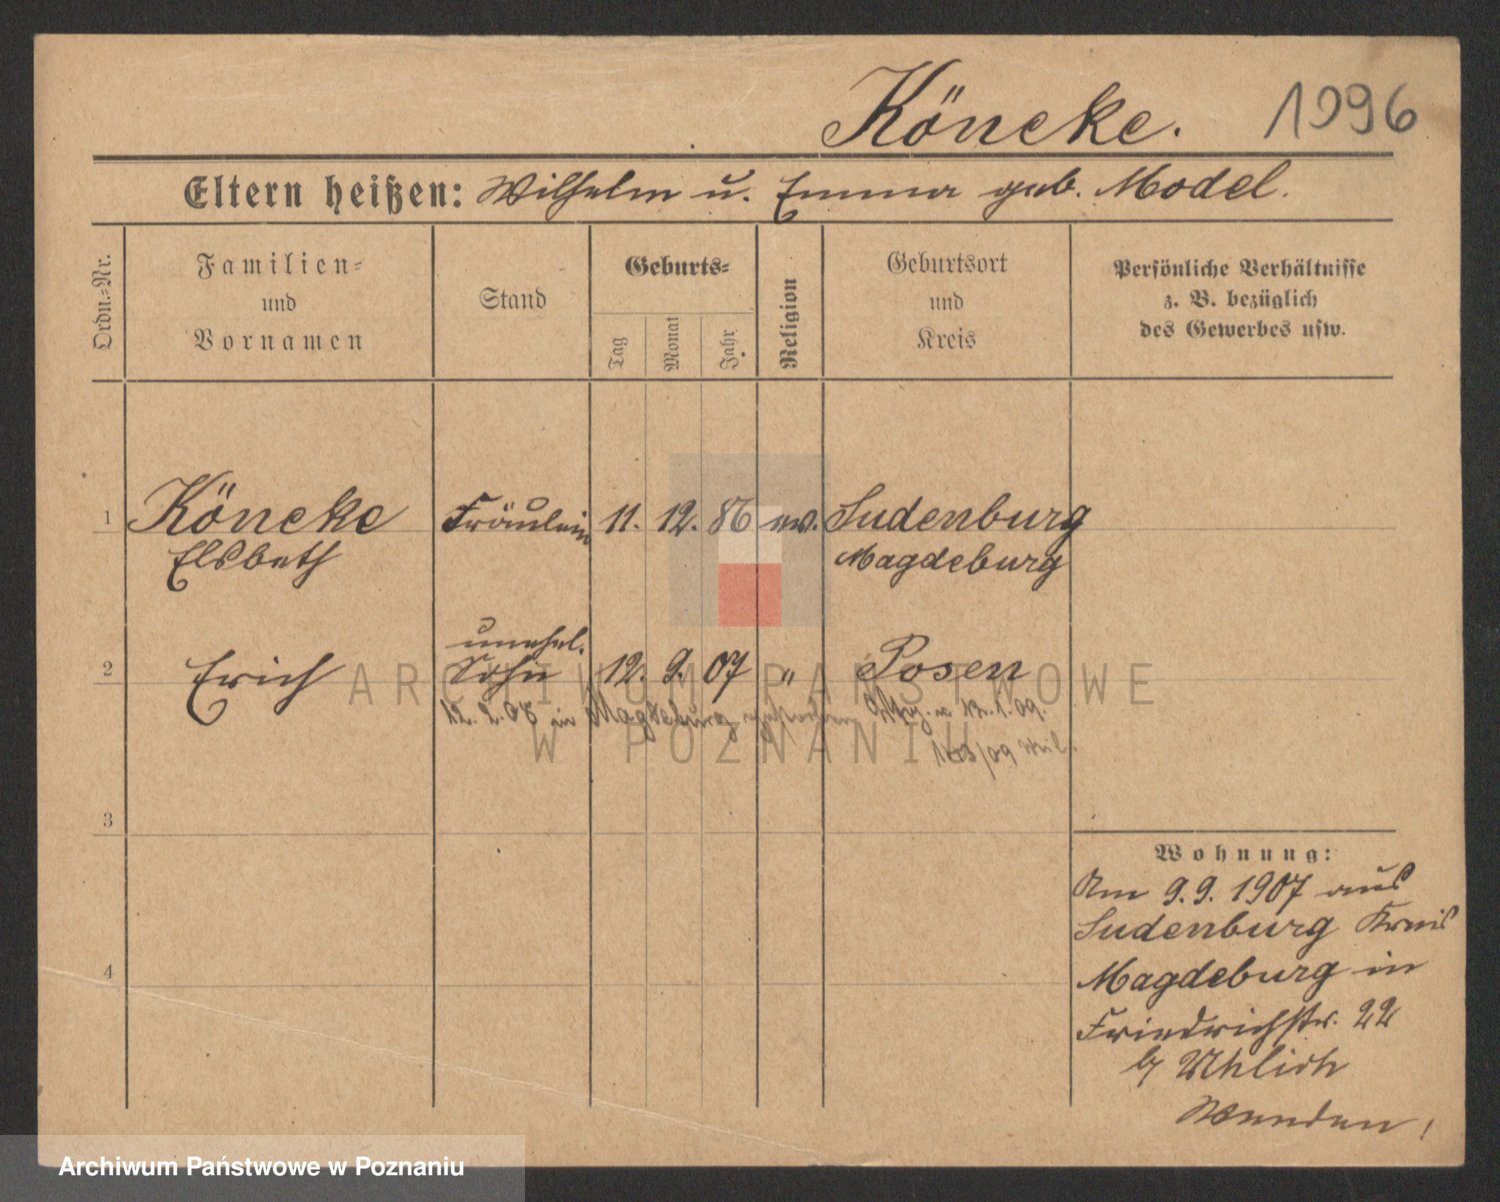 Köneke. 1996
Eltern heißen: Wilhelm u. Emma geb. Model.
Ordn.-Nr.
Familien-
und
Vornamen
Stand
Geburts-
Tag
Monat
Jahr
Religion
Geburtsort
und
Kreis
Persönliche Verhältnisse
z. B. bezüglich
des Gewerbes usw.
1 Köneke Fräulein 11. 12. 86 ev. Sudenburg
Elsbeth Magdeburg
unehel.
2 Erich Sohn 12. 9. 07 " Posen
12. 2. 08 in Magdeburg gestorben
3
4
Wohnung:
Am 9.9. 1907 aus
Sudenburg Kreis
Magdeburg in
Friedrichstr. 22
b/ Uhlich
Wenden!
ARCHIWUM PAŃSTWOWE
W POZNANIU
Archiwum Państwowe w Poznaniu